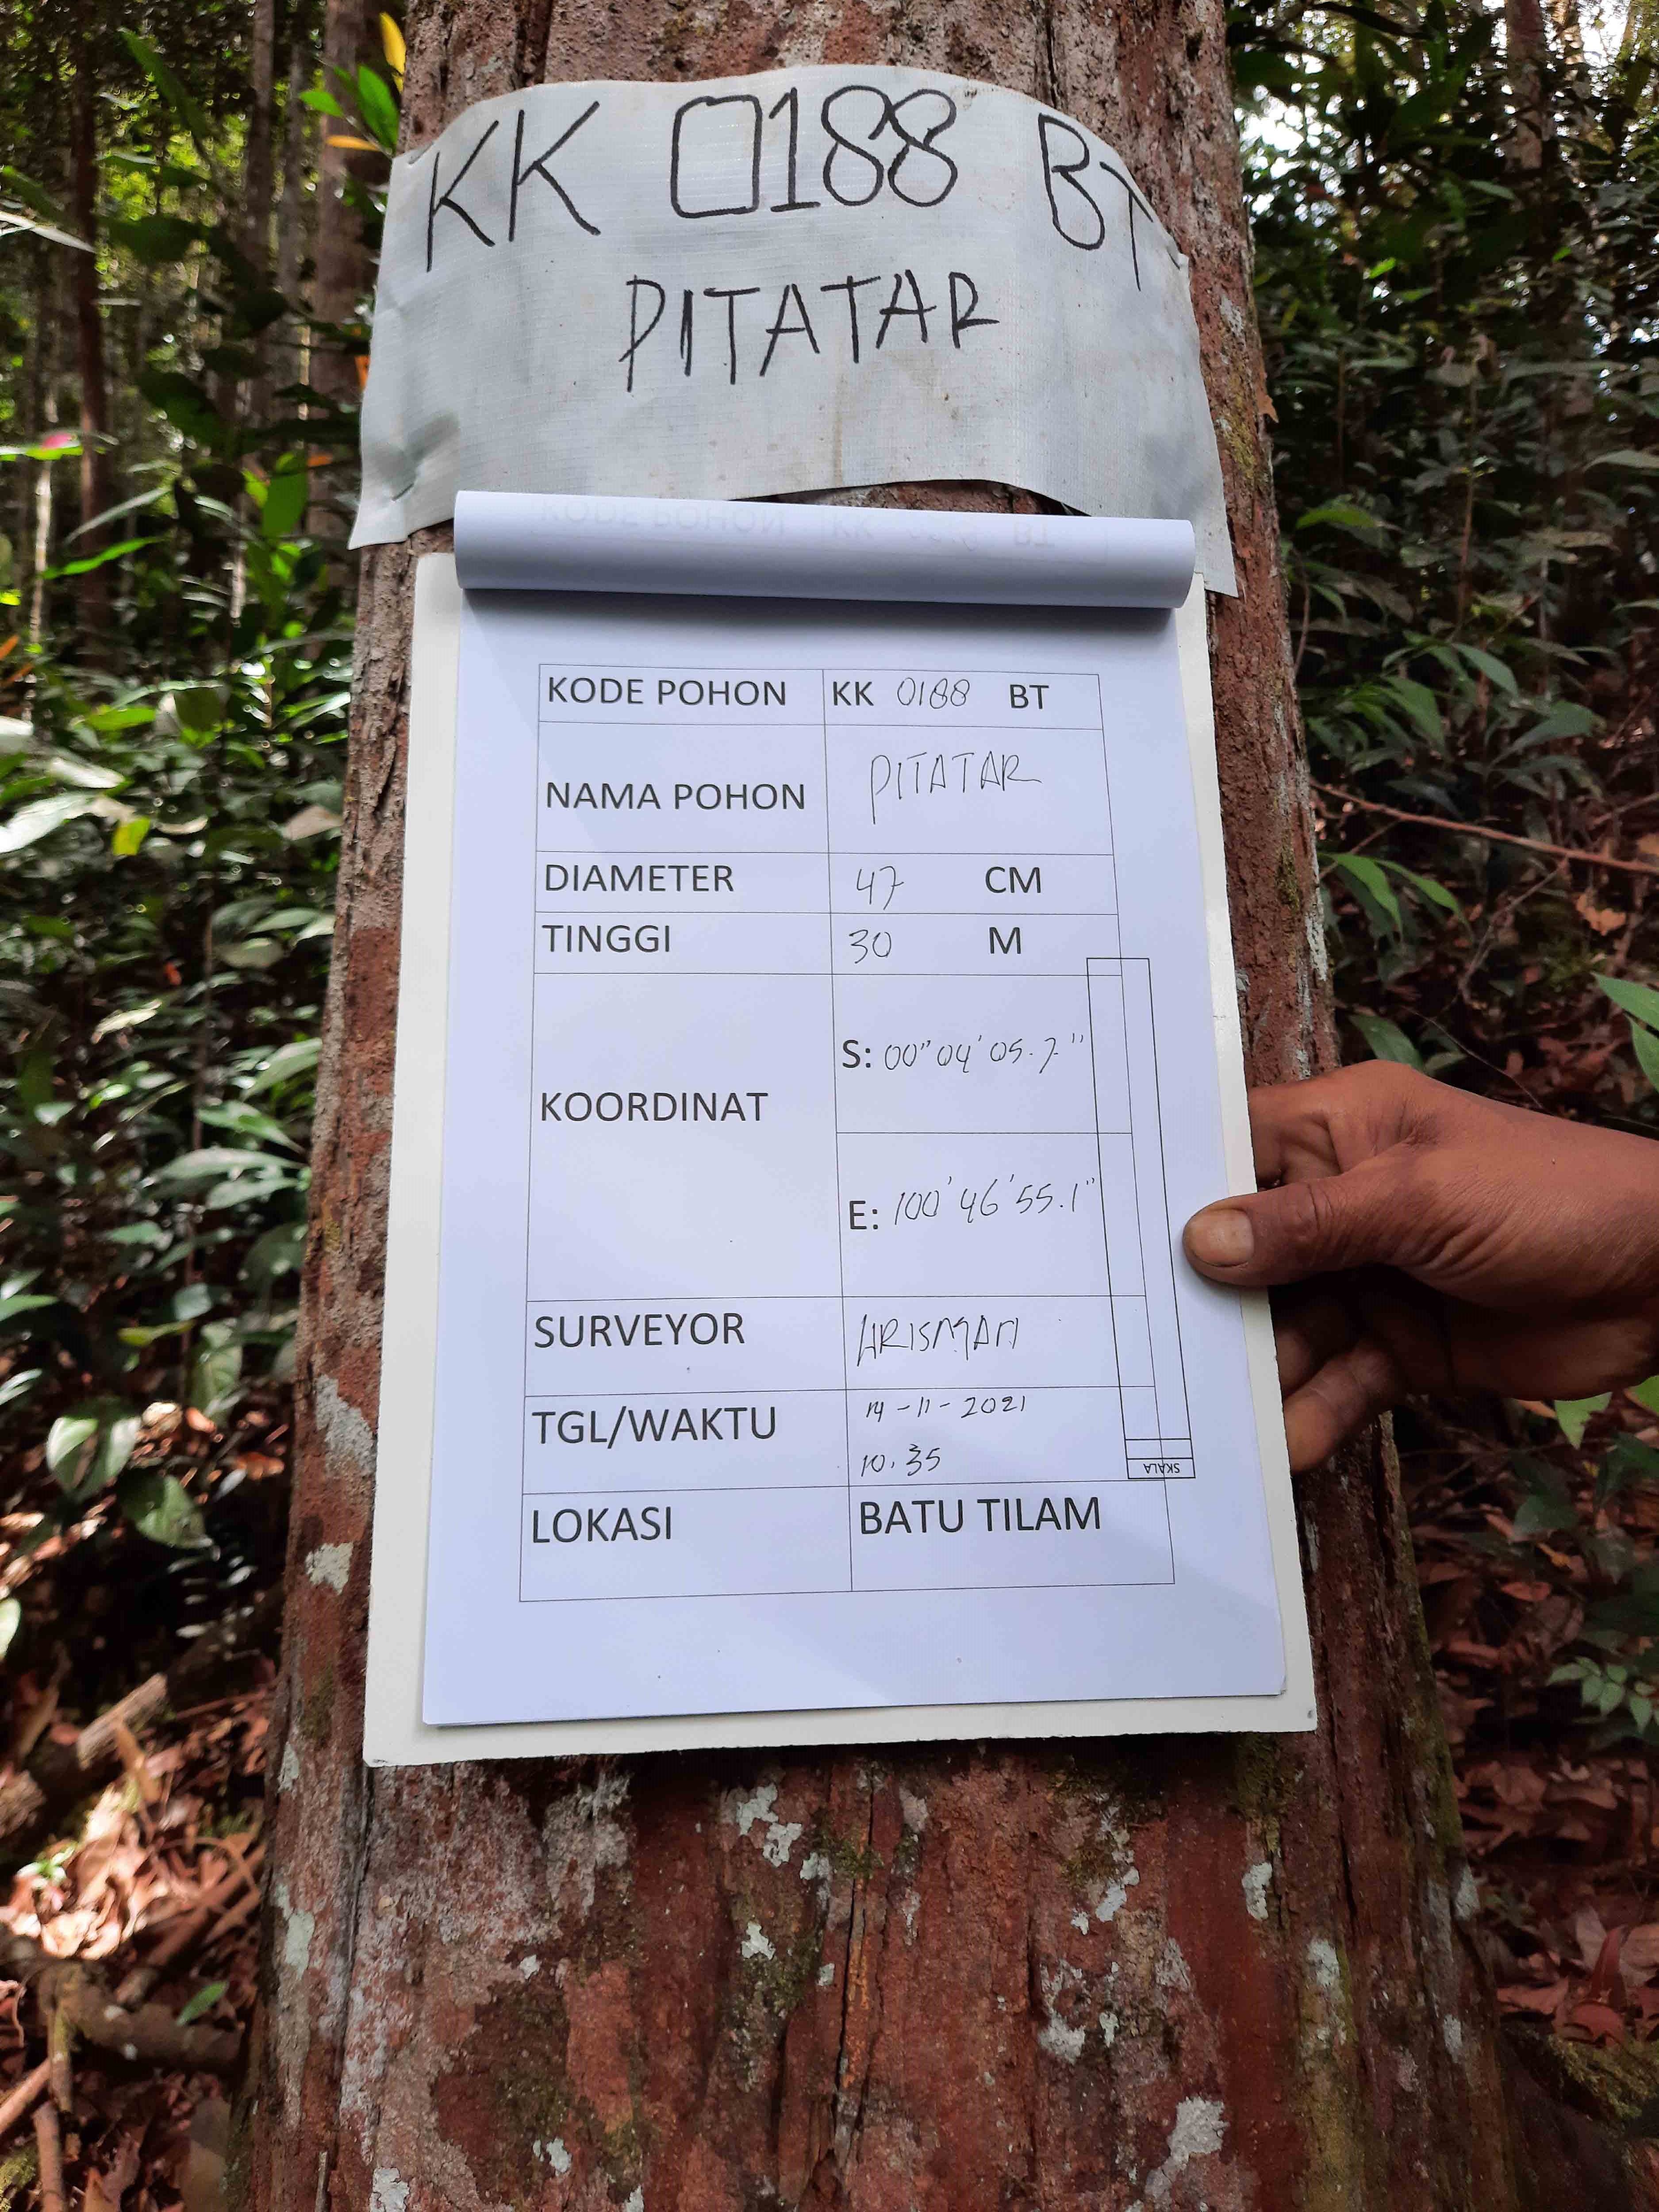 KK 0188 BT
PITATAR
KODE POHON KK 0188 BT
NAMA POHON PITATAR
DIAMETER 47 CM
TINGGI 30 M
KOORDINAT
S: 00" 04' 05.7"
E: 100' 46' 55.1"
SURVEYOR
TGL/WAKTU 14-11-2021
10.35
LOKASI BATU TILAM
SKALA